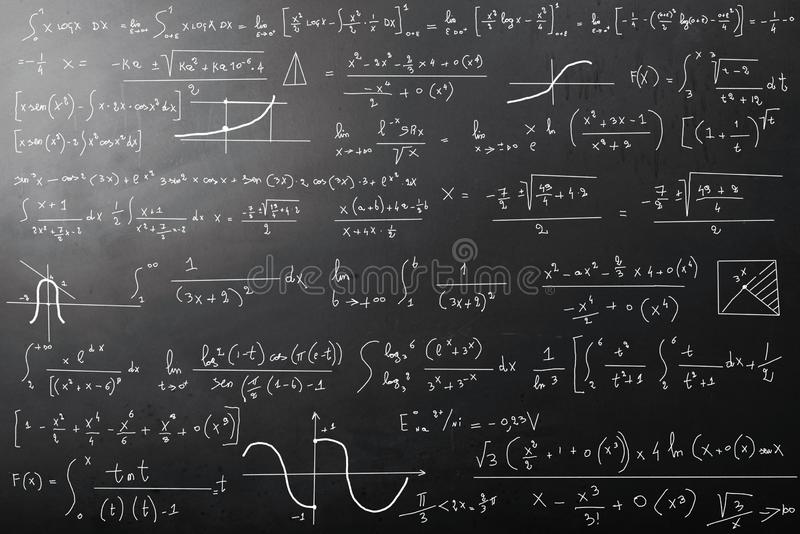 ∫₀¹ x log x dx = lim_{ε→0+} ∫_{0+ε}¹ x log x dx = lim_{ε→0+} [x²/2 log x - ∫ x²/2 · 1/x dx]¹_{0+ε} = lim_{ε→0+} [x²/2 log x - x²/4]¹_{0+ε} = lim_{ε→0+} [-1/4 - ((0+ε)²/2 log(0+ε) - (0+ε)²/4)] = -1/4 - 0
= -1/4 x = (-Ka ± √(Ka² + Ka 10⁻⁶·4))/2 = (x² - 2x² - 2/3 x4 + 0(x⁴))/(-x⁴/2 + 0(x⁴)) F(x) = ∫₃ˣ √(t-2)/(t²+12) dt
[x sen(x²) - ∫ x·2x·cos x² dx]
[x sen(x²) - 2∫ x² cos x² dx] lim_{x→+∞} (e^{-x} sen x)/√x = lim_{x→+∞} x/e ln((x²+3x-1)/(x²+2)) [(1+1/t)^{√t}]
sen³x - cos²(3x) + e^{x²} 3sen²x cos x + 2sen(3x)·2cos(3x)·3 + e^{x²}·2x
∫ (x+1)/(2x²+7/2 x-2) dx 1/2 ∫ (x+1)/(x²+7/2 x-2) dx x = (-7/2 ± √(49/4+4·2))/2 (x(a+b)+4a-1/3 b)/(x+4x·1/2) x = (-7/2 ± √(49/4+4·2))/2 = (-7/2 ± √((49+8)/4))/2
∫₁^∞ 1/(3x+2)² dx lim_{b→+∞} ∫₁ᵇ 1/(3x+2)² dx (x²-ax²-2/3 x4+0(x⁴))/(-x⁴/2+0(x⁴)) 3x
∫₂^{+∞} x e^{dx}/[(x²+x-6)ᵇ dx lim_{t→0+} (log²(1-t) cos(π(e-t))/(sen(π/2(1-6)-1) ∫_{log₃2}^{log₃6} (eˣ+3ˣ)/(3ˣ+3⁻ˣ) dx 1/ln3 [∫₂⁶ t²/(t²+1) ∫₂⁶ t/(t²+1) dx + 1/2
[1 - x²/2 + x⁴/4 - x⁶/6 + x⁸/8 + 0(x³)] +1 -1 E°Na²⁺/Ni = -0,23V
F(x) = ∫₀ˣ tn t/((t)(t)-1) = t π/3 < 2x = 2/3 π (√3(x²/2+1+0(x³)) x 4 ln(x+0(x) sen x)/(x - x³/3! + 0(x³) √3/x → ∞
dreamstime